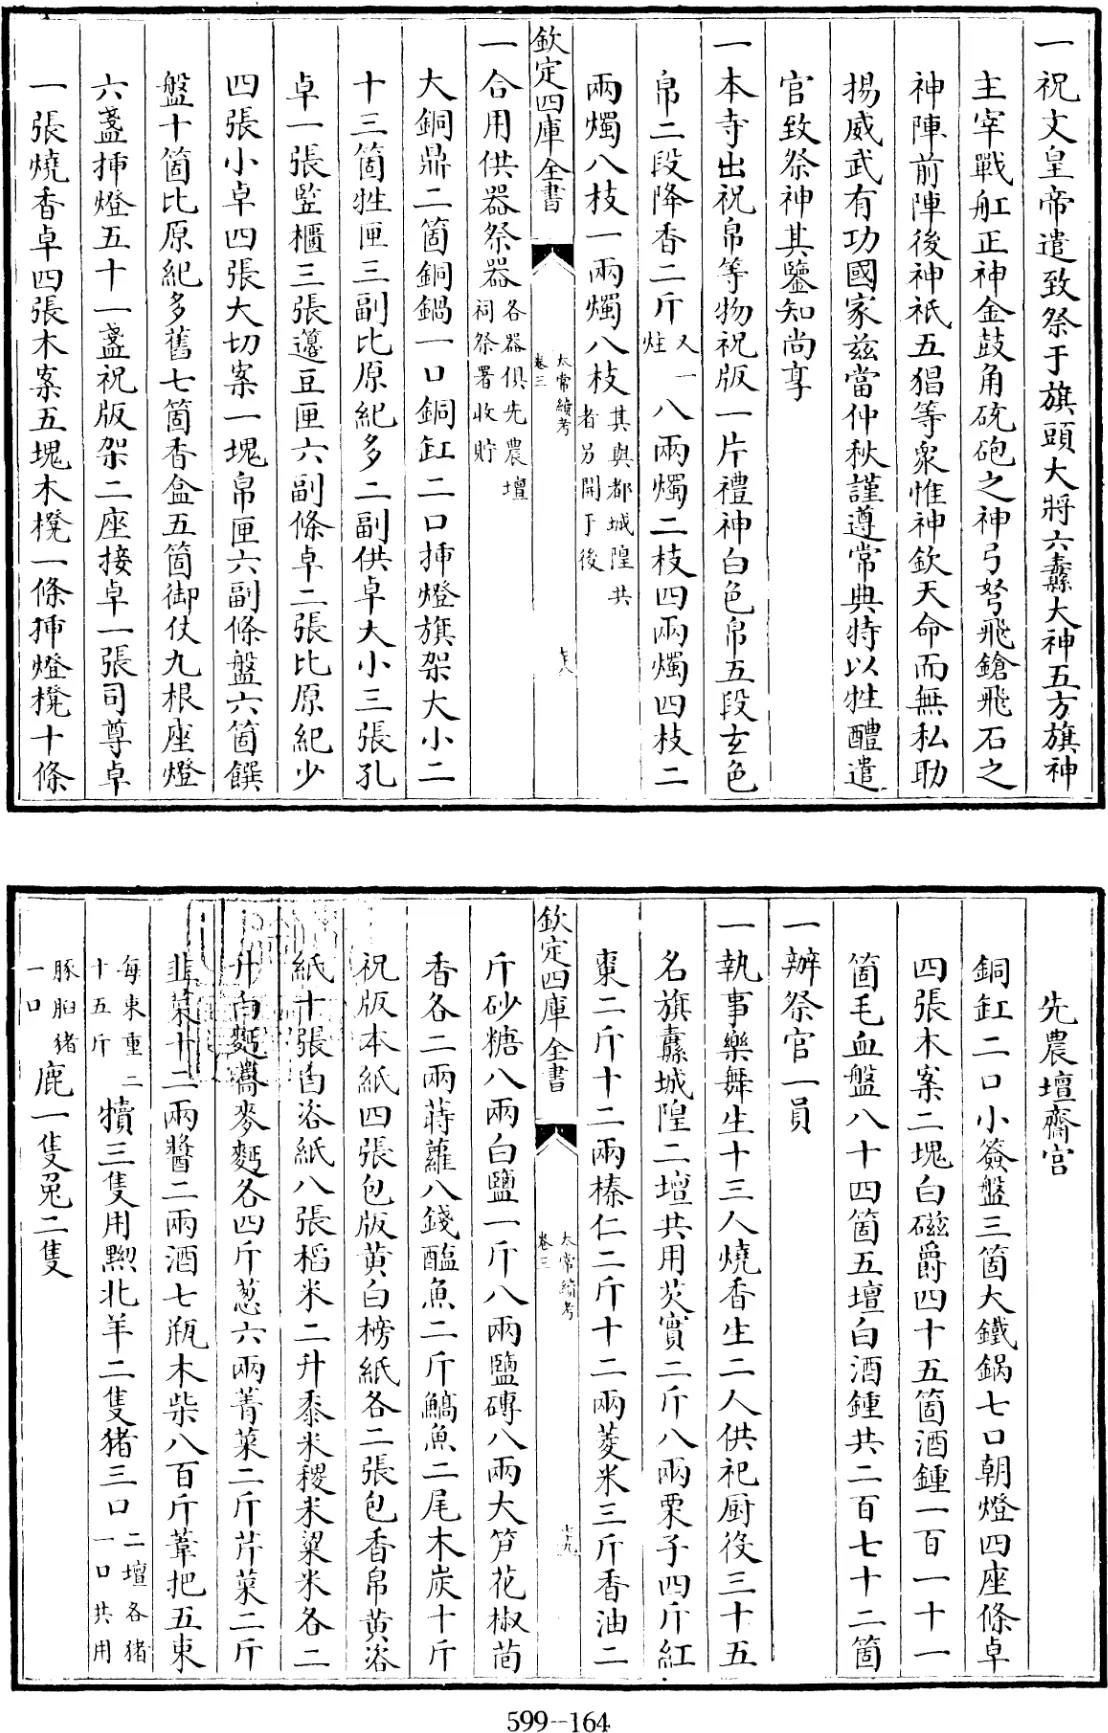 一祝文皇帝遣致祭于旗頭大將六纛大神五方旗神
主宰戰舡正神金鼓角銃砲之神弓弩飛鎗飛石之
神陣前陣後神祇五猖等衆惟神欽天命而無私助
揚威武有功國家兹當仲秋謹遵常典特以牲醴遣
官致祭神其鑒知尚享
一本寺出祝帛等物祝版一片禮神白色帛五段玄色
帛二段降香二斤又一炷八兩燭二枝四兩燭四枝二
兩燭八枝一兩燭八枝其與都城隍共者另開于後
欽定四庫全書
太常續考
卷三
七八
一合用供器祭器各器俱先農壇祠祭署收貯
大銅鼎二箇銅鍋一口銅缸二口揷燈旗架大小二
十三箇牲匣三副比原紀多二副供卓大小三張孔
卓一張豎櫃三張籩豆匣六副條卓二張比原紀少
四張小卓四張大切案一塊帛匣六副條盤六箇饌
盤十箇比原紀多舊七箇香盒五箇御仗九根座燈
六盞揷燈五十一盞祝版架二座接卓一張司尊卓
一張燒香卓四張木案五塊木櫈一條揷燈櫈十條
先農壇齋宫
銅缸二口小簽盤三箇大鐵鍋七口朝燈四座條卓
四張木案二塊白磁爵四十五箇酒鍾一百一十一
箇毛血盤八十四箇五壇白酒鍾共二百七十二箇
一辦祭官一員
一執事樂舞生十三人燒香生二人供祀厨役三十五
名旗纛城隍二壇共用芡實二斤八兩栗子四斤紅
棗二斤十二兩榛仁二斤十二兩菱米三斤香油二
欽定四庫全書
太常續考
卷三
七九
斤砂糖八兩白鹽一斤八兩鹽磚八兩大笋花椒茴
香各二兩蒔蘿八錢醢魚二斤鱐魚二尾木炭十斤
祝版本紙四張包版黄白榜紙各二張包香帛黄咨
紙十張白咨紙八張稻米二升黍米稷米粱米各二
升白麪蕎麥麪各四斤葱六兩菁菜二斤芹菜二斤
韭菜十二兩醬二兩酒七瓶木柴八百斤葦把五束
每束重二十五斤犢三隻用黝北羊二隻猪三口二壇各猪一口共用
豚胉猪一口鹿一隻兔二隻
599--164